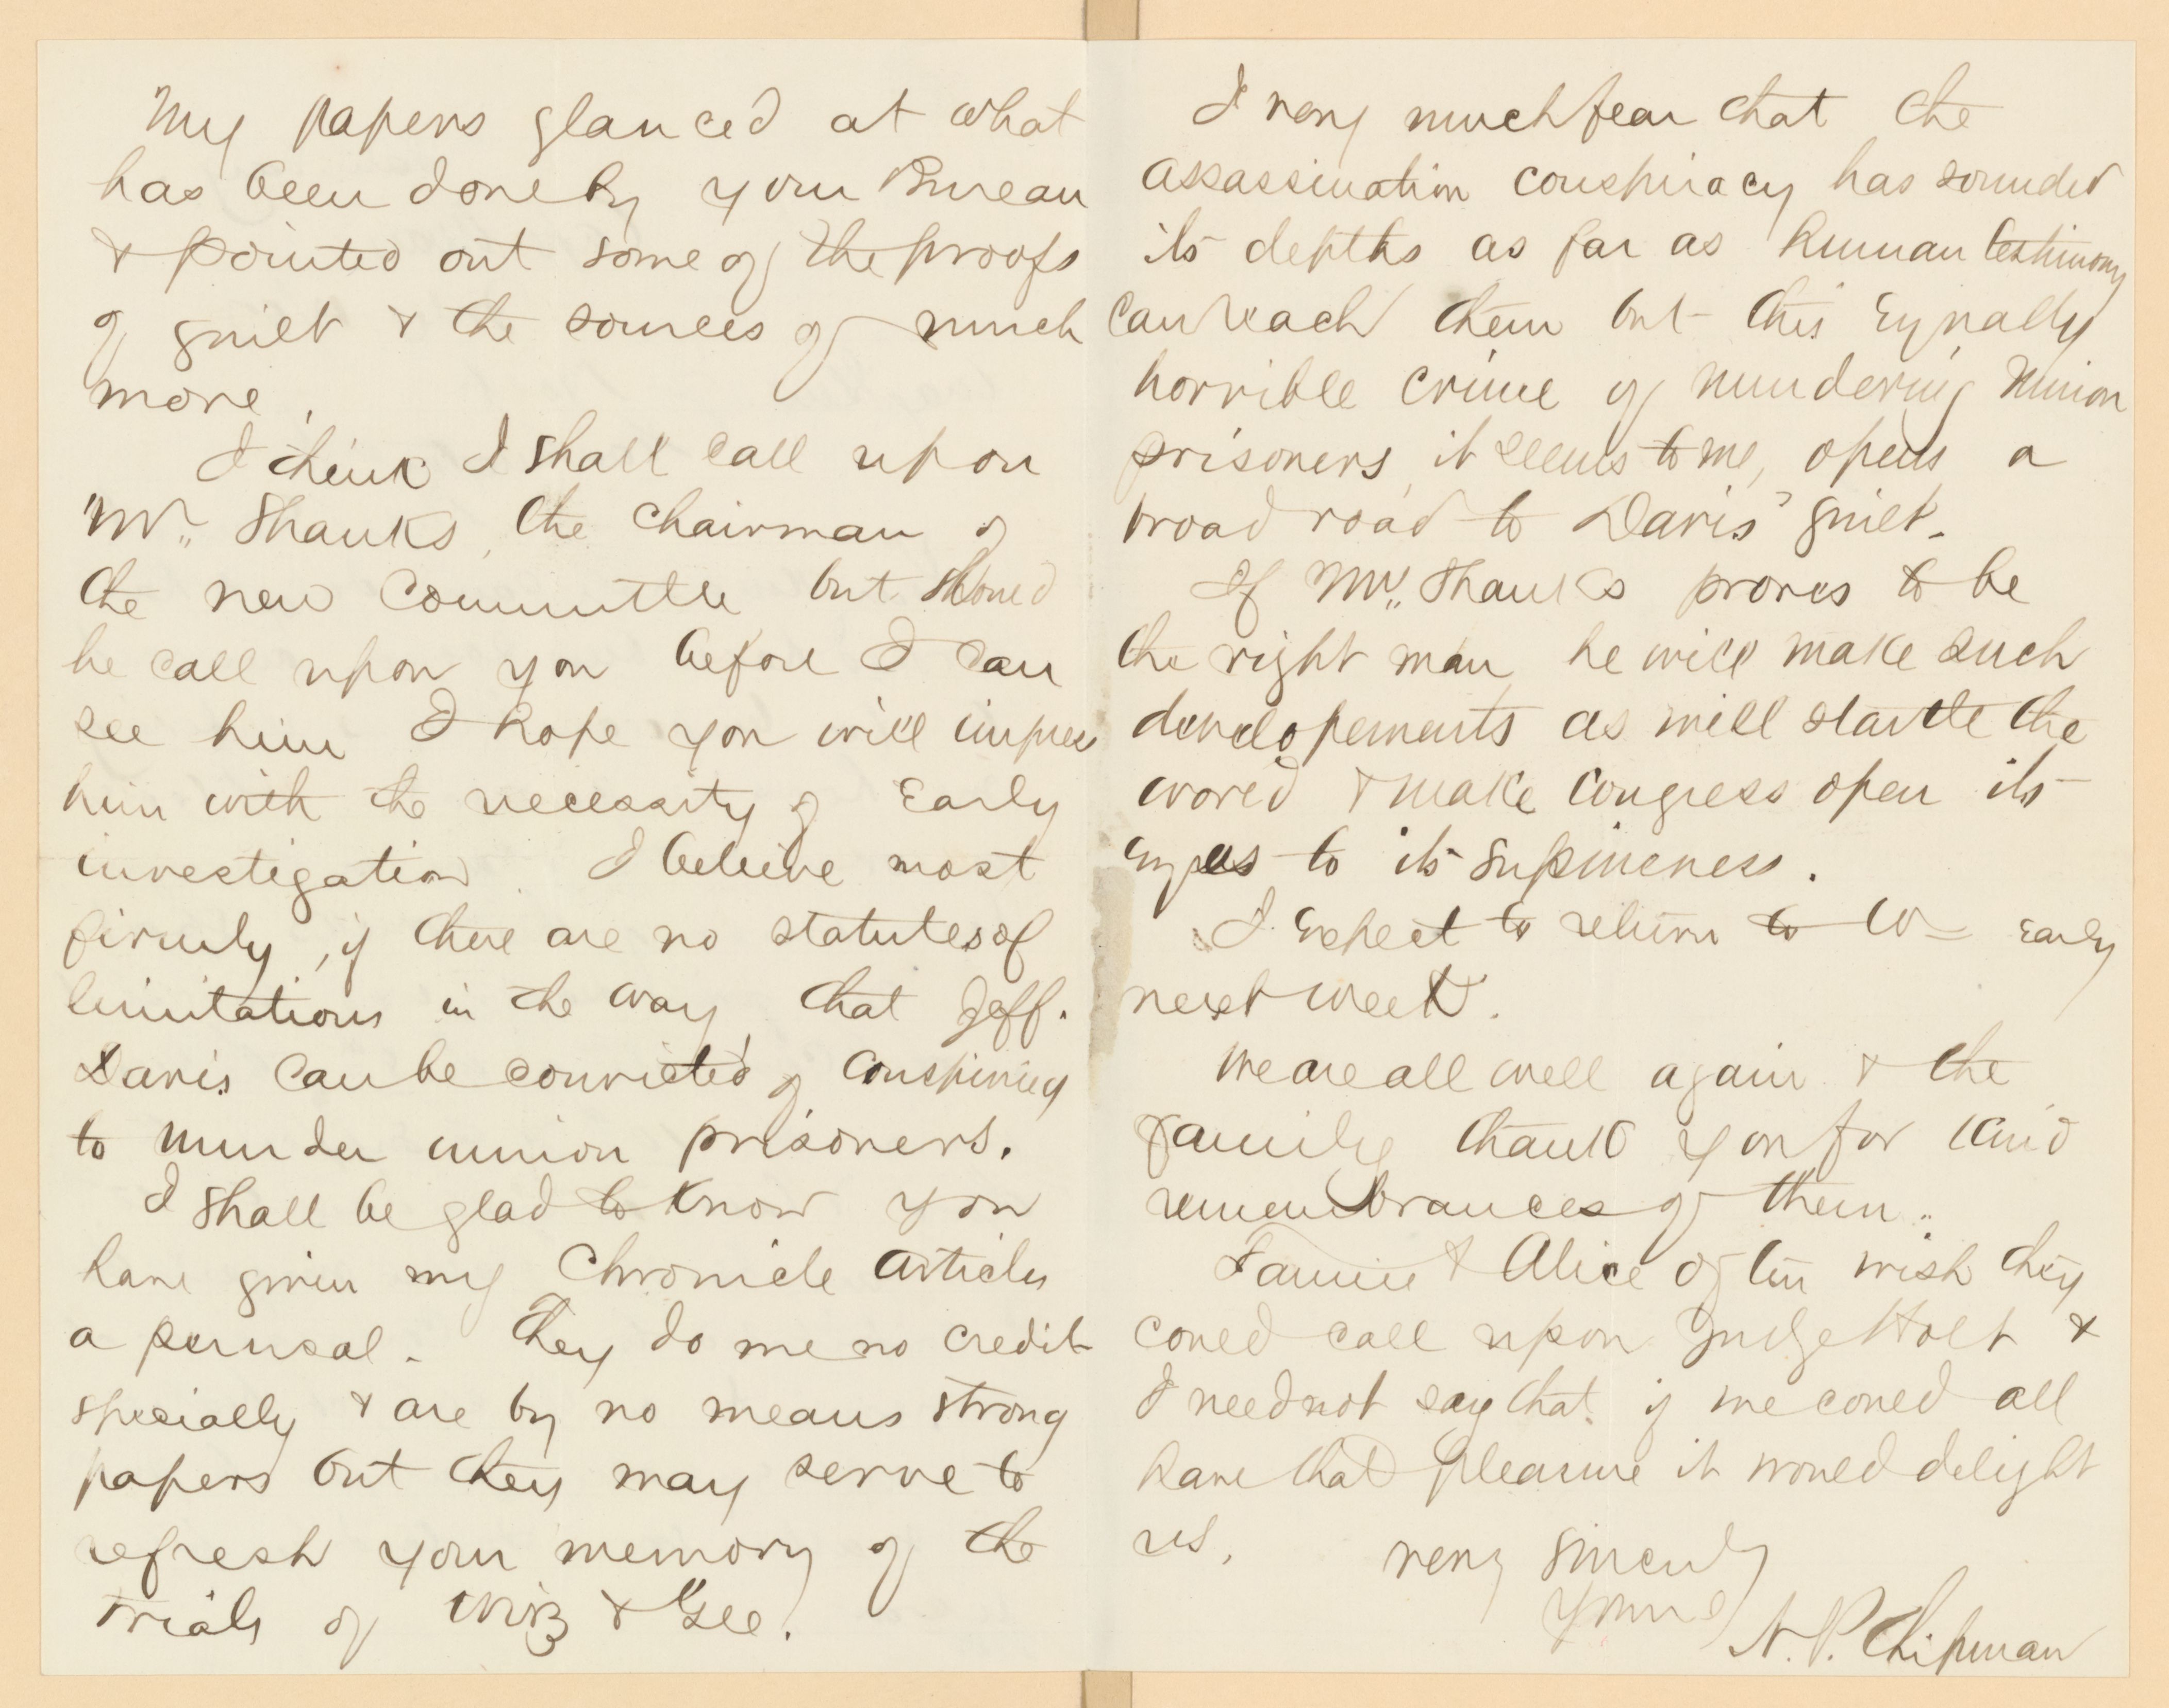 My papers glanced at what
has been done by your Bureau
& pointed out some of the proofs
of guilt & the sources of much
more.
I think I shall call upon
Mr. Shanks, the chairman of
the new Committee but should
he call upon you before I can
see him I hope you will impress
him with the necessity of early
investigation. I believe most
firmly, if there are no statutes of
limitations in the way, that Jeff.
Davis can be convicted of conspiring
to murder union prisoners.
I shall be glad to know you
have given my Chronicle articles
a perusal. They do me no credit
specially & are by no means strong
papers but they may serve to
refresh your memory of the
trials of Wirz & Gee.
I very much fear that the
assassination conspiracy has sounded
its depths as far as human testimony
can reach them but this equally
horrible crime of murdering Union
prisoners, it seems to me, opens a
broad road to Davis' guilt.
If Mr. Shanks proves to be
the right man he will make such
developements as will startle the
world & make Congress open its
eyes to its supineness.
I expect to return to W= early
next week.
We are all well again & the
family thank you for kind
remembrances of them.
Fannie & Alice often wish they
could call upon Judge Holt &
I need not say that if we could all
have that pleasure it would delight
us.
very sincerely
yours
N. P. Chipman